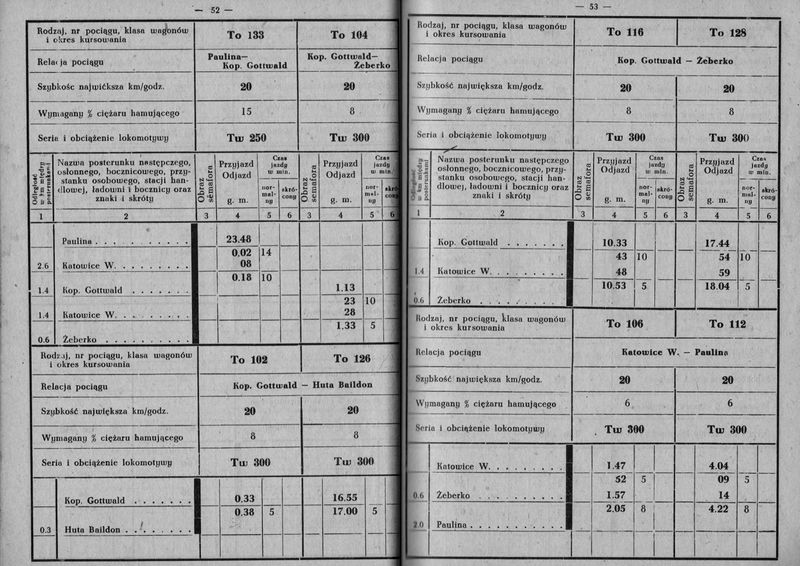 — 52 —
Rodzaj, nr pociągu, klasa wagonów
i okres kursowania
To 133
To 104
Relacja pociągu
Paulina—
Kop. Gottwald
Kop. Gottwald—
Żeberko
Szybkość największa km/godz.
20
20
Wymagany % ciężaru hamującego
15
8
Seria i obciążenie lokomotywy
Tw 250
Tw 300
Odległość w km między posterunkami
Nazwa posterunku następczego, osłonnego, bocznicowego, przystanku osobowego, stacji handlowej, ładowni i bocznicy oraz znaki i skróty
Obraz semafora
Przyjazd
Odjazd
g. m.
Czas jazdy w min.
normalny
skrócony
Obraz semafora
Przyjazd
Odjazd
g. m.
Czas jazdy w min.
normalny
skrócony
1 2 3 4 5 6 3 4 5 6
Paulina . . . . . . . . . . 23.48
0.02 14
2.6 Katowice W. . . . . . . . . 08
0.18 10
1.4 Kop. Gottwald . . . . . . 1.13
23 10
1.4 Katowice W. . . . . . . . . 28
1.33 5
0.6 Żeberko . . . . . . . . . .
Rodzaj, nr pociągu, klasa wagonów
i okres kursowania
To 102
To 126
Relacja pociągu
Kop. Gottwald — Huta Baildon
Szybkość największa km/godz.
20
20
Wymagany % ciężaru hamującego
8
8
Seria i obciążenie lokomotywy
Tw 300
Tw 300
Kop. Gottwald . . . . . . 0.33 16.55
0.38 5 17.00 5
0.3 Huta Baildon . . . . . . .
— 53 —
Rodzaj, nr pociągu, klasa wagonów
i okres kursowania
To 116
To 128
Relacja pociągu
Kop. Gottwald — Żeberko
Szybkość największa km/godz.
20
20
Wymagany % ciężaru hamującego
8
8
Seria i obciążenie lokomotywy
Tw 300
Tw 300
Odległość w km między posterunkami
Nazwa posterunku następczego osłonnego, bocznicowego, przystanku osobowego, stacji handlowej, ładowni i bocznicy oraz znaki i skróty
Obraz semafora
Przyjazd
Odjazd
g. m.
Czas jazdy w min.
normalny
skrócony
Obraz semafora
Przyjazd
Odjazd
g. m.
Czas jazdy w min.
normalny
skrócony
1 2 3 4 5 6 3 4 5 6
Kop. Gottwald . . . . . . . 10.33 17.44
43 10 54 10
1.4 Katowice W. . . . . . . . . 48 59
10.53 5 18.04 5
0.6 Żeberko . . . . . . . . . .
Rodzaj, nr pociągu, klasa wagonów
i okres kursowania
To 106
To 112
Relacja pociągu
Katowice W. — Paulina
Szybkość największa km/godz.
20
20
Wymagany % ciężaru hamującego
6
6
Seria i obciążenie lokomotywy
Tw 300
Tw 300
Katowice W. . . . . . . . . 1.47 4.04
52 5 09 5
0.6 Żeberko . . . . . . . . . . 1.57 14
2.05 8 4.22 8
2.0 Paulina . . . . . . . . . .